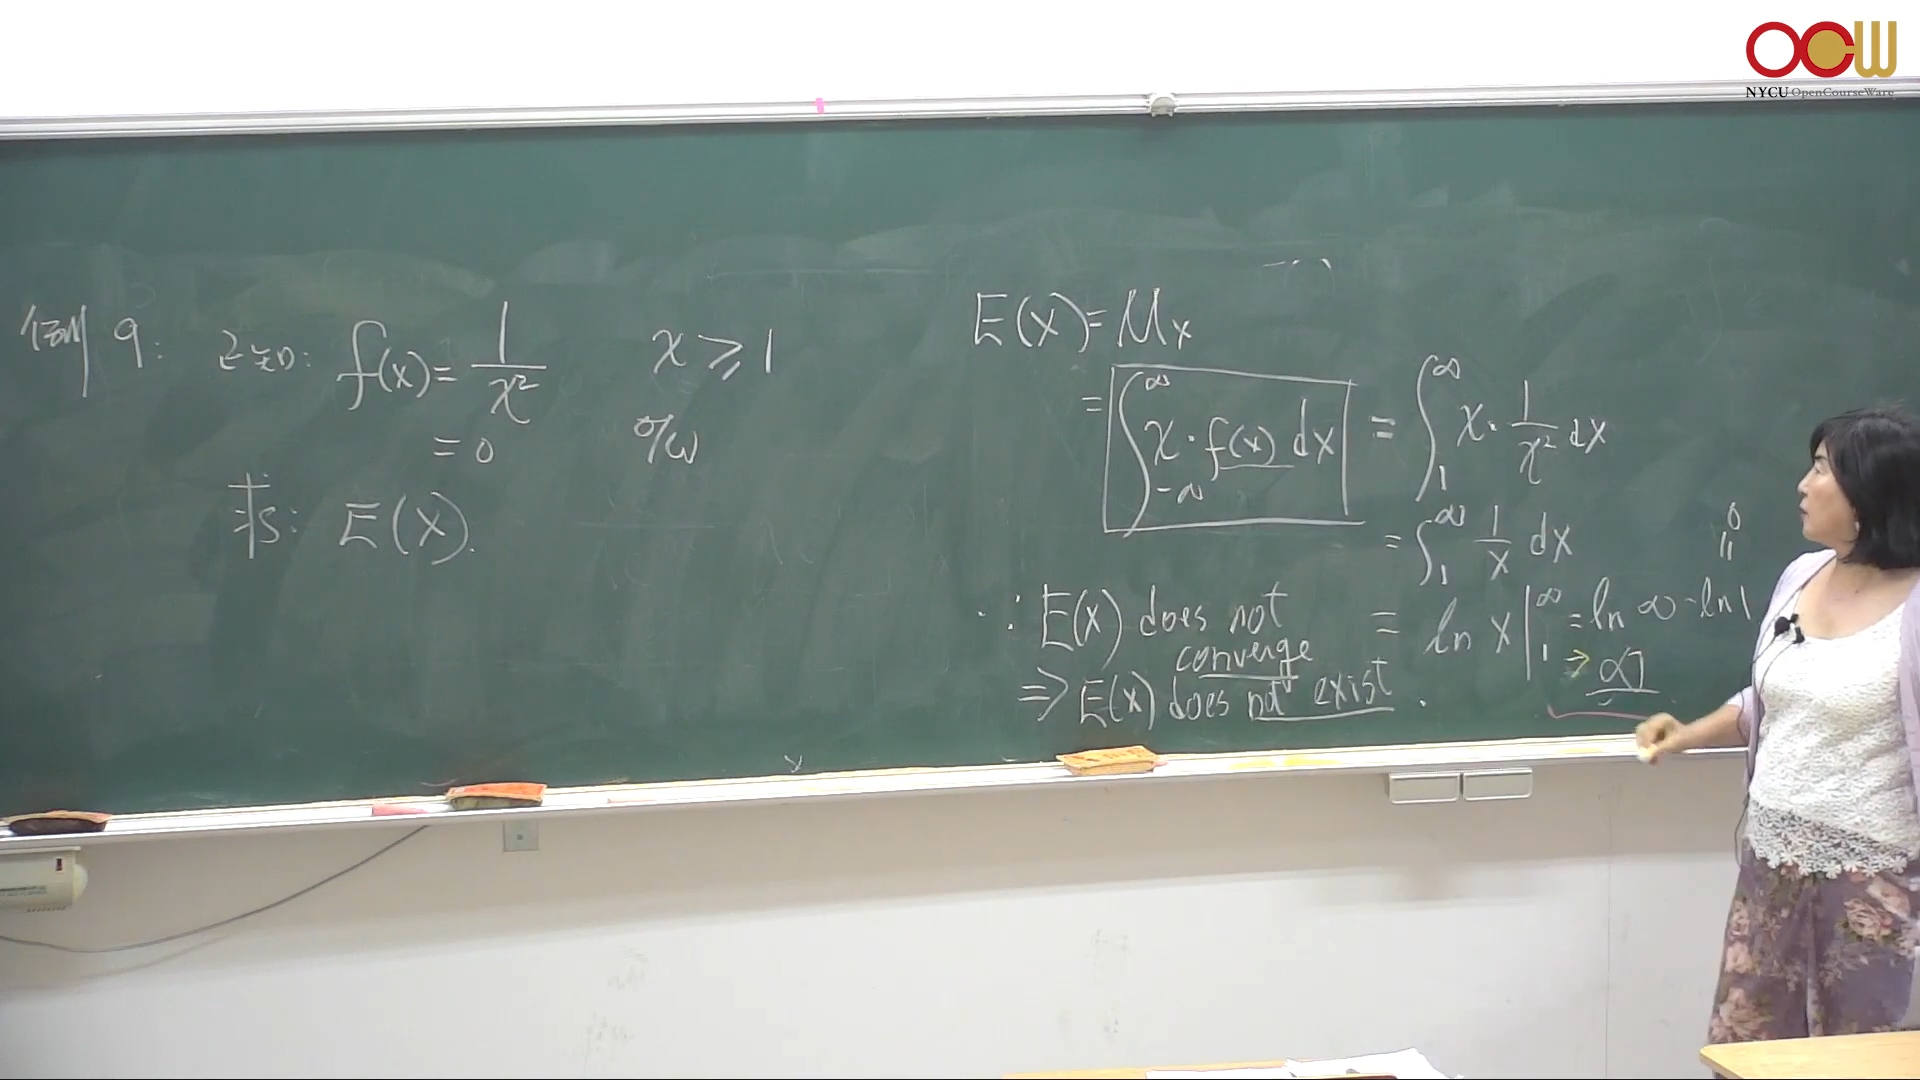 OCW
NYCU OpenCourseWare
例 9: 已知: f(x) = 1/x² x ≥ 1
= 0 o/w
求: E(X).
E(X) = μx
= ∫_{-∞}^{∞} x · f(x) dx = ∫_1^∞ x · 1/x² dx
= ∫_1^∞ 1/x dx
= ln x |_1^∞ = ln ∞ - ln 1
0
=
⇒
∵ E(X) does not converge
⇒ E(X) does not exist.